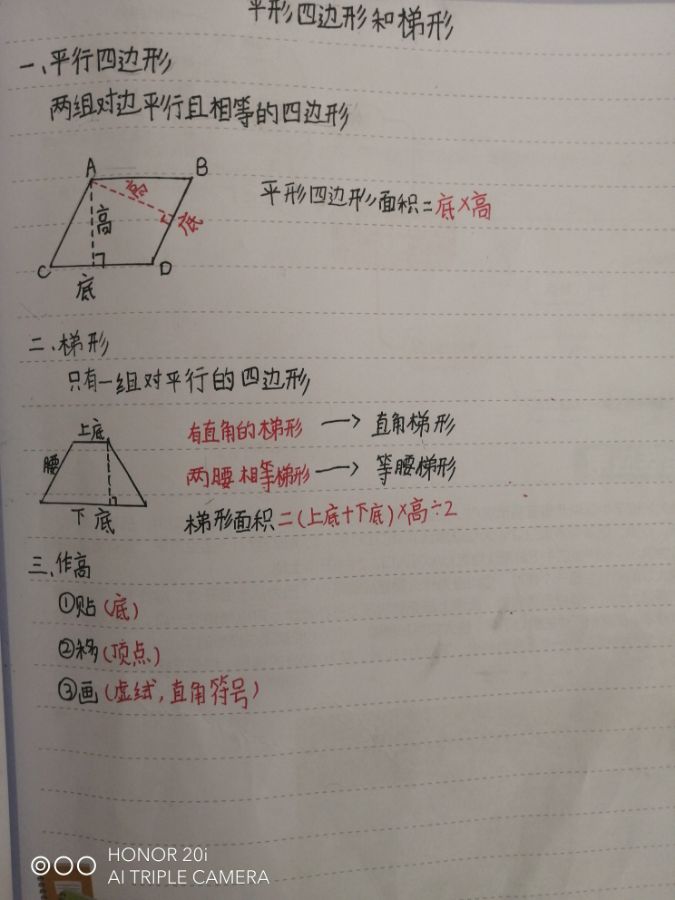 平形四边形和梯形
一、平行四边形
两组对边平行且相等的四边形
A
B
高
高
底
C
D
底
平形四边形面积=底×高
二、梯形
只有一组对平行的四边形
上底
腰
下底
有直角的梯形 → 直角梯形
两腰相等梯形 → 等腰梯形
梯形面积=(上底+下底)×高÷2
三、作高
①贴(底)
②移(顶点)
③画(虚线,直角符号)
HONOR 20i
AI TRIPLE CAMERA